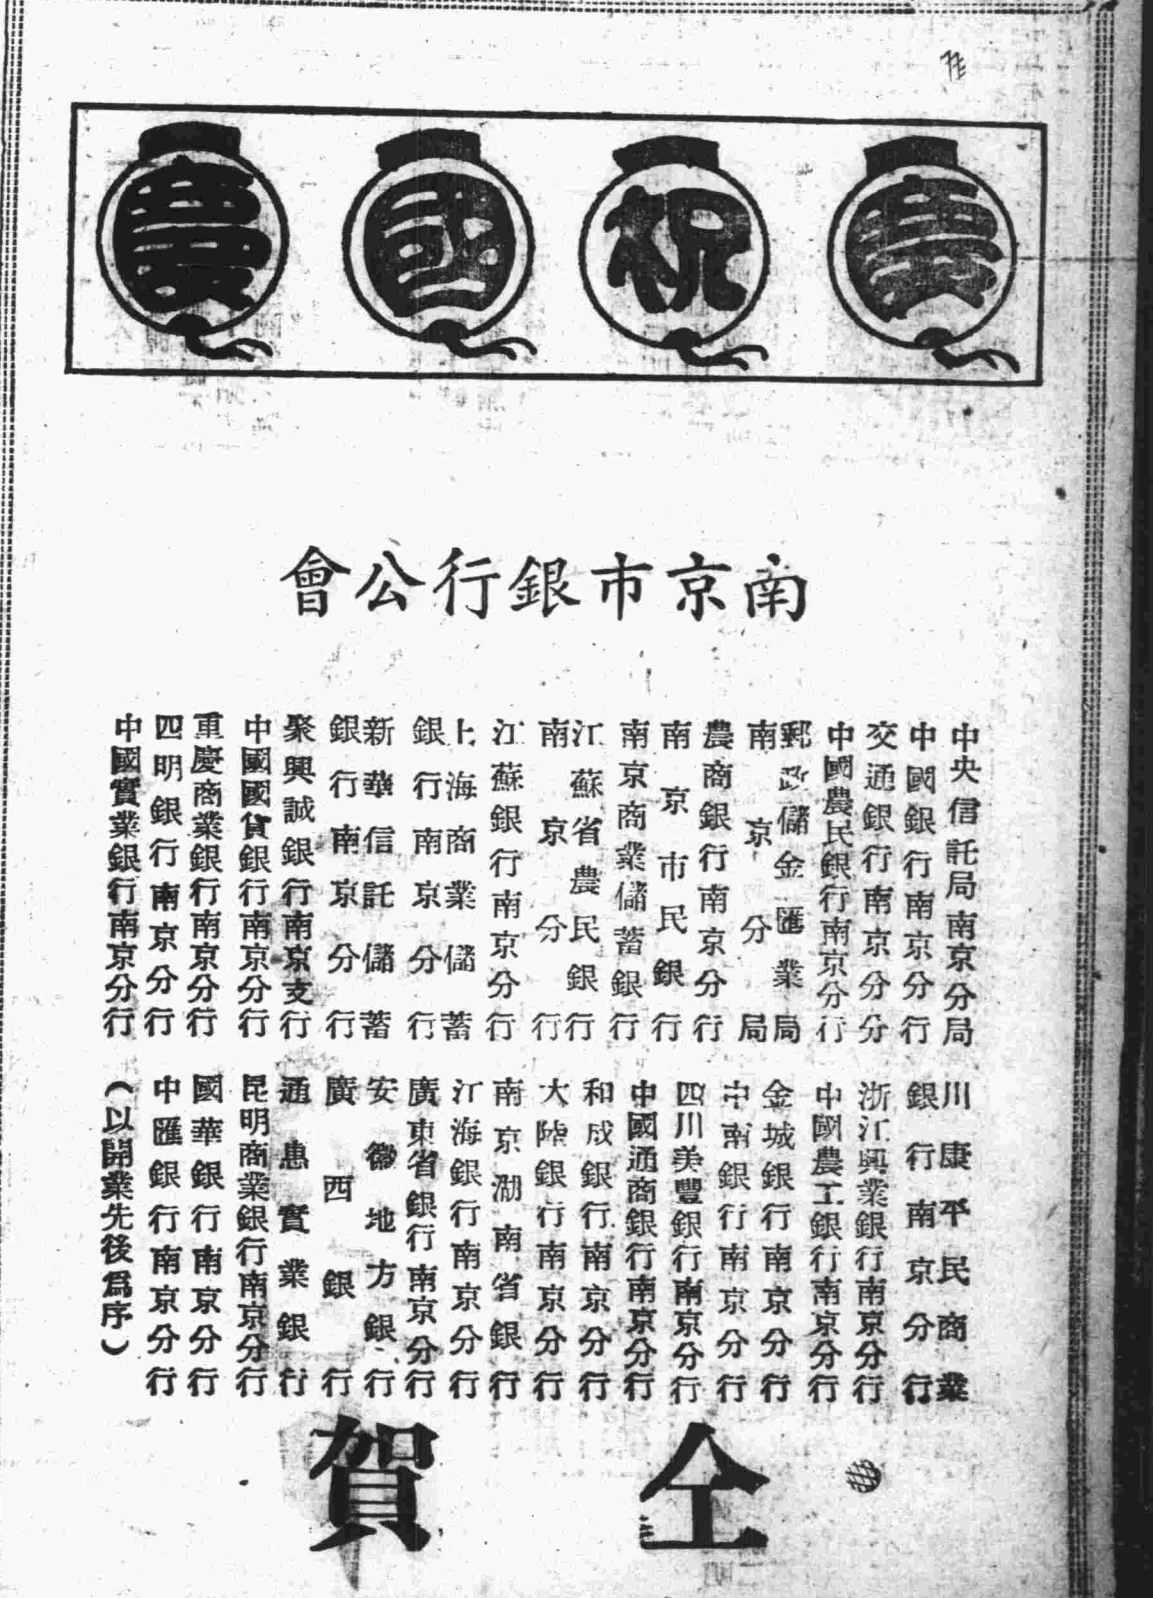 慶祝國慶
南京市銀行公會
中央信託局南京分局
中國銀行南京分行
交通銀行南京分行
中國農民銀行南京分行
郵政儲金匯業局
南京分局
農商銀行南京分行
南京市民銀行
南京商業儲蓄銀行
江蘇省農民銀行
南京分行
江蘇銀行南京分行
上海商業儲蓄
銀行南京分行
新華信託儲蓄
銀行南京分行
聚興誠銀行南京支行
中國國貨銀行南京分行
重慶商業銀行南京分行
四明銀行南京分行
中國實業銀行南京分行
川康平民商業
銀行南京分行
浙江興業銀行南京分行
中國農工銀行南京分行
金城銀行南京分行
中南銀行南京分行
四川美豐銀行南京分行
中國通商銀行南京分行
和成銀行南京分行
大陸銀行南京分行
南京湖南省銀行
江海銀行南京分行
廣東省銀行南京分行
安徽地方銀行
廣西銀行
通惠實業銀行
昆明商業銀行南京分行
國華銀行南京分行
中匯銀行南京分行
(以開業先後爲序)
仝賀